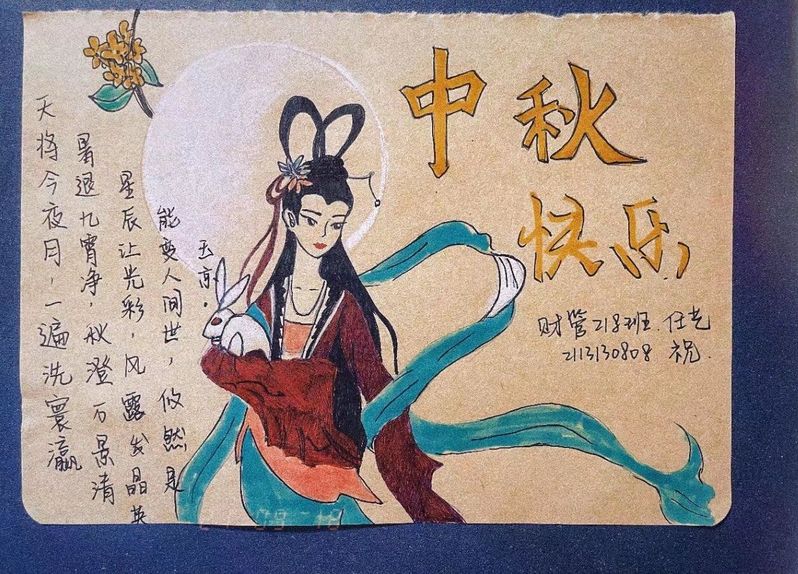 中秋
快乐
财管218班 任艺
2113130808 祝.
天将今夜月，一遍洗寰瀛
暑退九霄净，秋澄万景清
星辰让光彩，风露发晶英
能变人间世，攸然是
玉京。